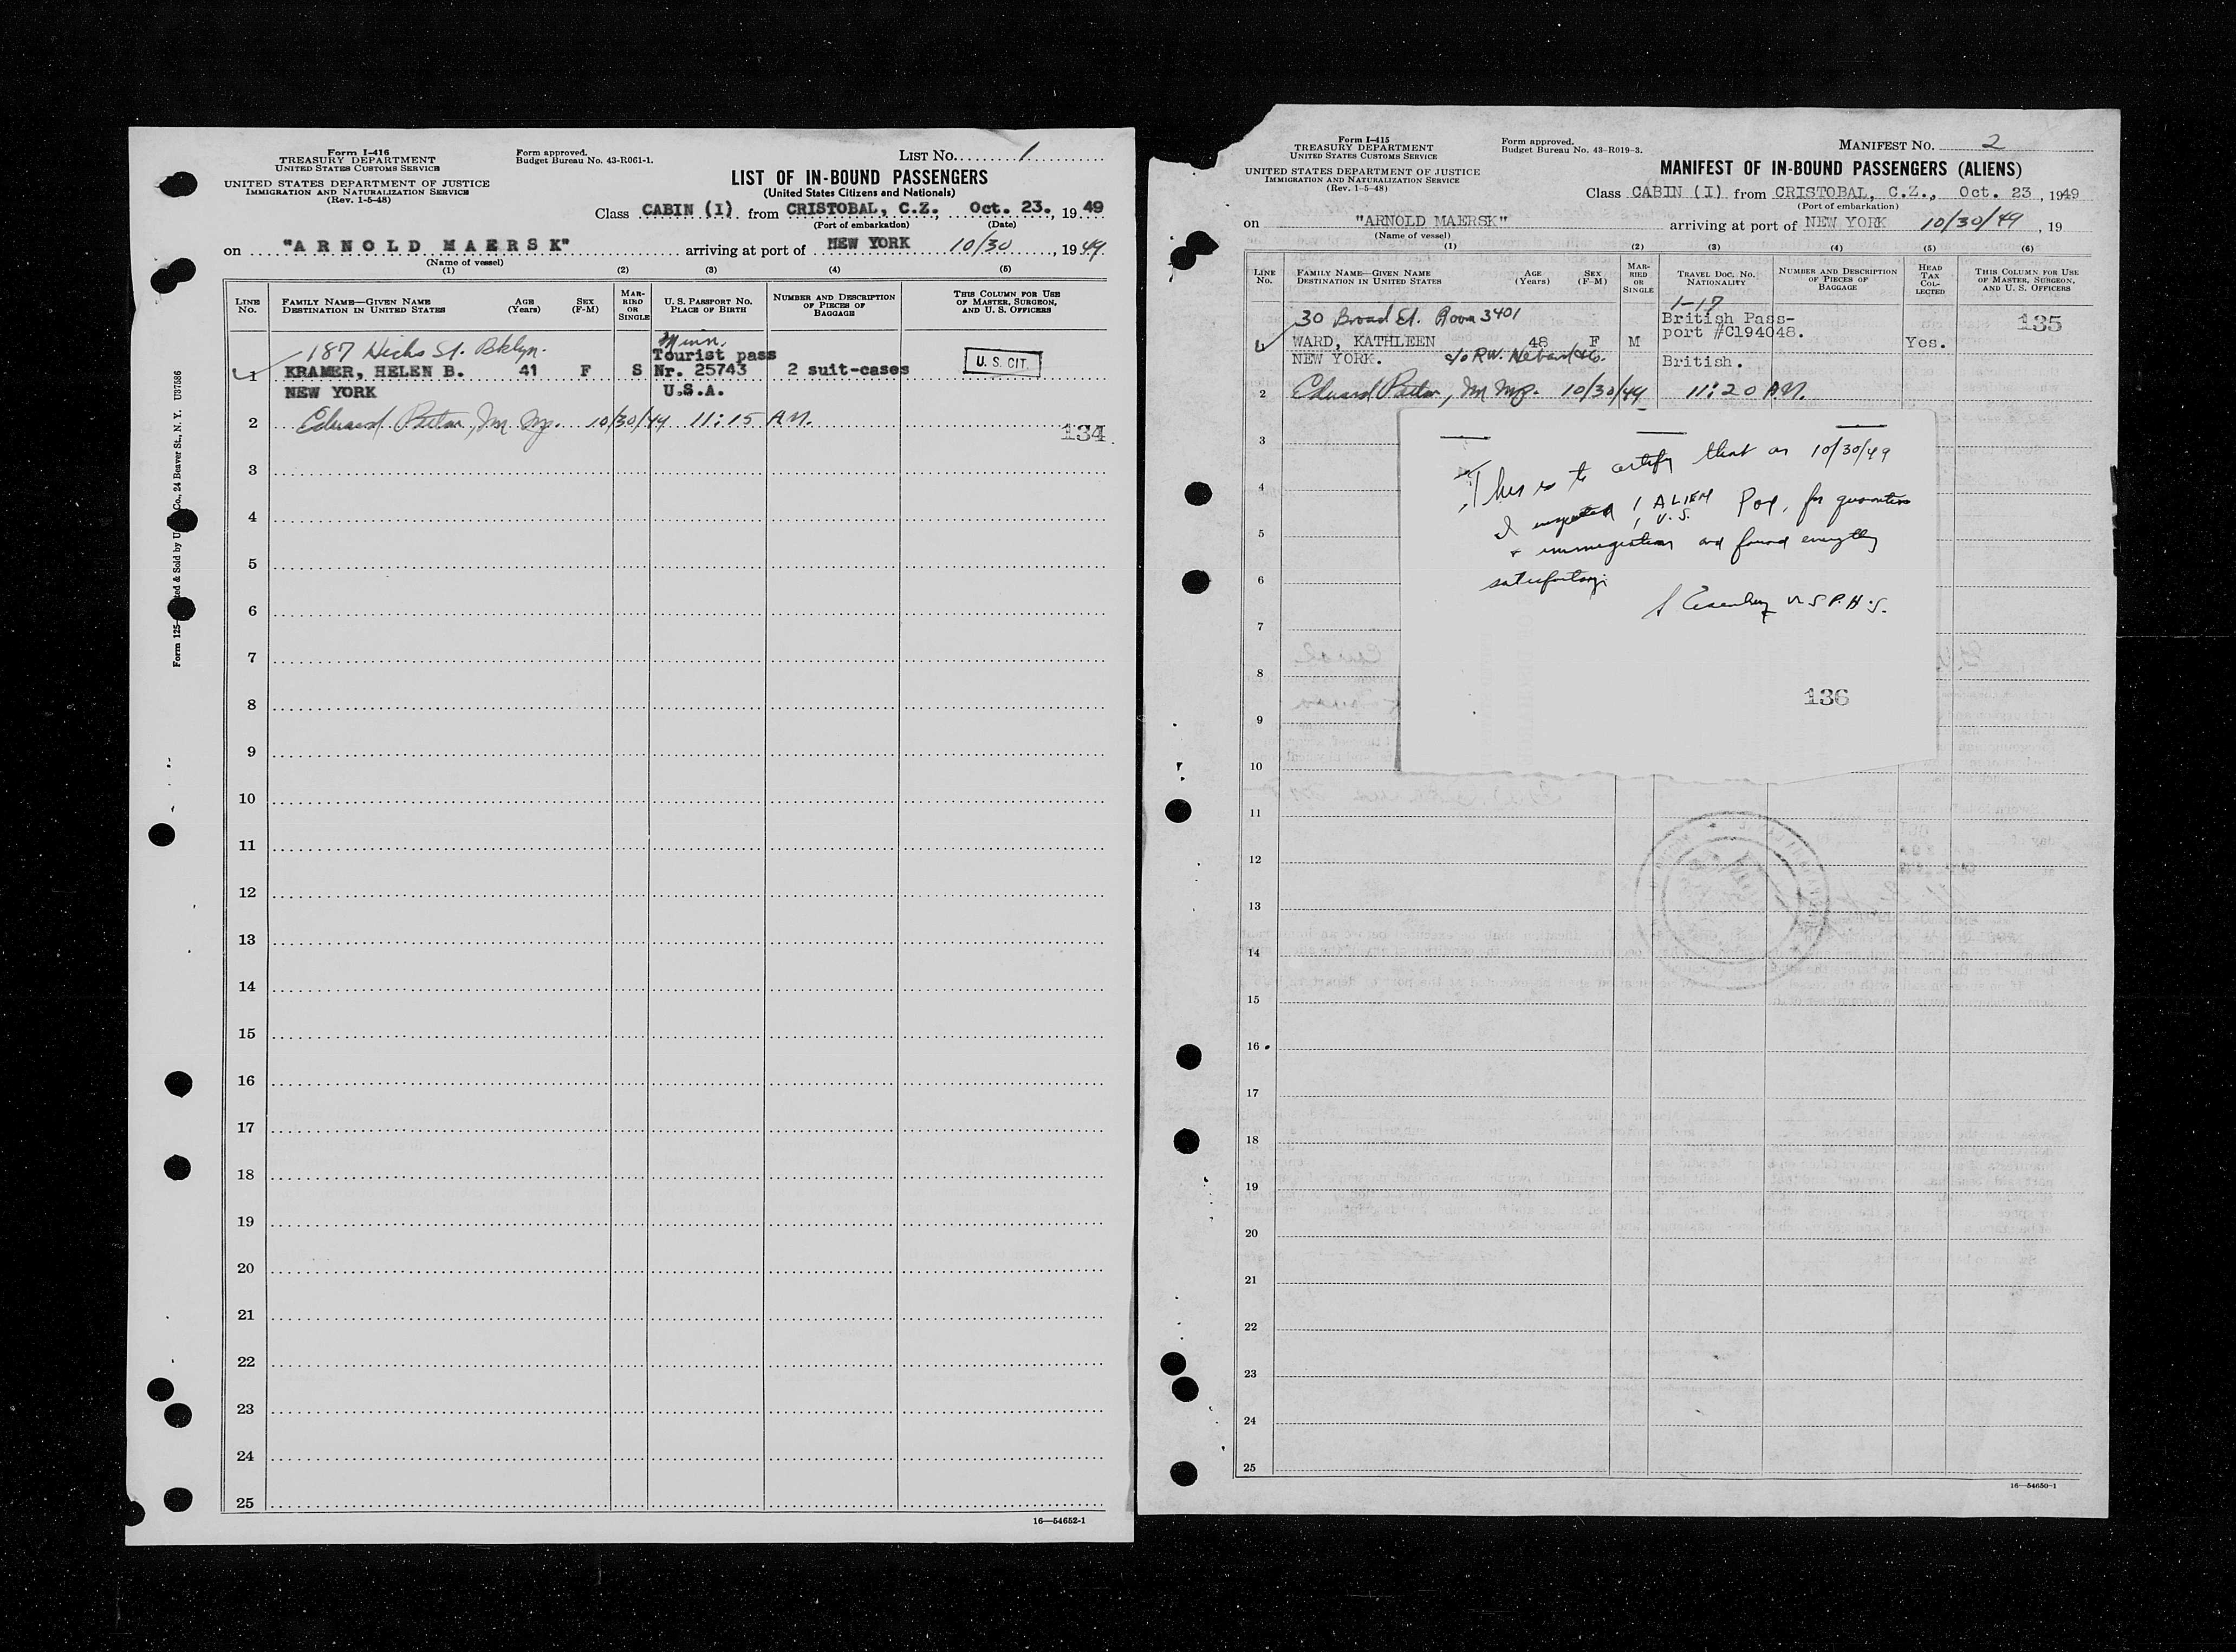 Form I-416
TREASURY DEPARTMENT
UNITED STATES CUSTOMS SERVICE
UNITED STATES DEPARTMENT OF JUSTICE
IMMIGRATION AND NATURALIZATION SERVICE
(Rev. 1-5-48)
Form approved.
Budget Bureau No. 43-R061-1.
LIST No. 1
LIST OF IN-BOUND PASSENGERS
(United States Citizens and Nationals)
Class CABIN (I) from CRISTOBAL, C.Z. Oct. 23. 1949
(Port of embarkation) (Date)
on "ARNOLD MAERSK" arriving at port of NEW YORK 10/30, 1949
(Name of vessel)
(1) (2) (3) (4) (5)
LINE No.
FAMILY NAME—GIVEN NAME DESTINATION IN UNITED STATES
AGE (Years)
SEX (F-M)
MARRIED OR SINGLE
U. S. PASSPORT NO. PLACE OF BIRTH
NUMBER AND DESCRIPTION OF PIECES OF BAGGAGE
THIS COLUMN FOR USE OF MASTER, SURGEON, AND U. S. OFFICERS
Minn.
187 Hicks St. Bklyn. Tourist pass
1 KRAMER, HELEN B. 41 F S Nr. 25743 2 suit-cases U. S. CIT.
NEW YORK U.S.A.
2 Edward 10/30/49 11:15 AM.
134
3
4
5
6
7
8
9
10
11
12
13
14
15
16
17
18
19
20
21
22
23
24
25
16—54652-1
Form 125- Co., 24 Beaver St., N. Y. U37586
Form I-415
TREASURY DEPARTMENT
UNITED STATES CUSTOMS SERVICE
UNITED STATES DEPARTMENT OF JUSTICE
IMMIGRATION AND NATURALIZATION SERVICE
(Rev. 1-5-48)
Form approved.
Budget Bureau No. 43-R019-3.
MANIFEST No. 2
MANIFEST OF IN-BOUND PASSENGERS (ALIENS)
Class CABIN (I) from CRISTOBAL, C.Z., Oct. 23, 1949
(Port of embarkation)
on "ARNOLD MAERSK" arriving at port of NEW YORK 10/30/49, 19
(Name of vessel)
(1) (2) (3) (4) (5) (6)
LINE No.
FAMILY NAME—GIVEN NAME DESTINATION IN UNITED STATES
AGE (Years)
SEX (F-M)
MARRIED OR SINGLE
TRAVEL DOC. NO. NATIONALITY
NUMBER AND DESCRIPTION OF PIECES OF BAGGAGE
HEAD TAX COLLECTED
THIS COLUMN FOR USE OF MASTER, SURGEON, AND U. S. OFFICERS
1-17
30 Broad St. Room 3401 British Pass-
port #C194048. 135
1 WARD, KATHLEEN 48 F M Yes.
NEW YORK. c/o R.W. British.
2 Edward 10/30/49 11:20 AM.
3
4
5
6
7
8
9
10
11
12
13
14
15
16
17
18
19
20
21
22
23
24
25
This is to certify that on 10/30/49
I inspected 1 ALIEN
1 U.S.
for quarantine
+ immigration and found everything
satisfactory.
U.S.P.H.S.
136
16—54650-1